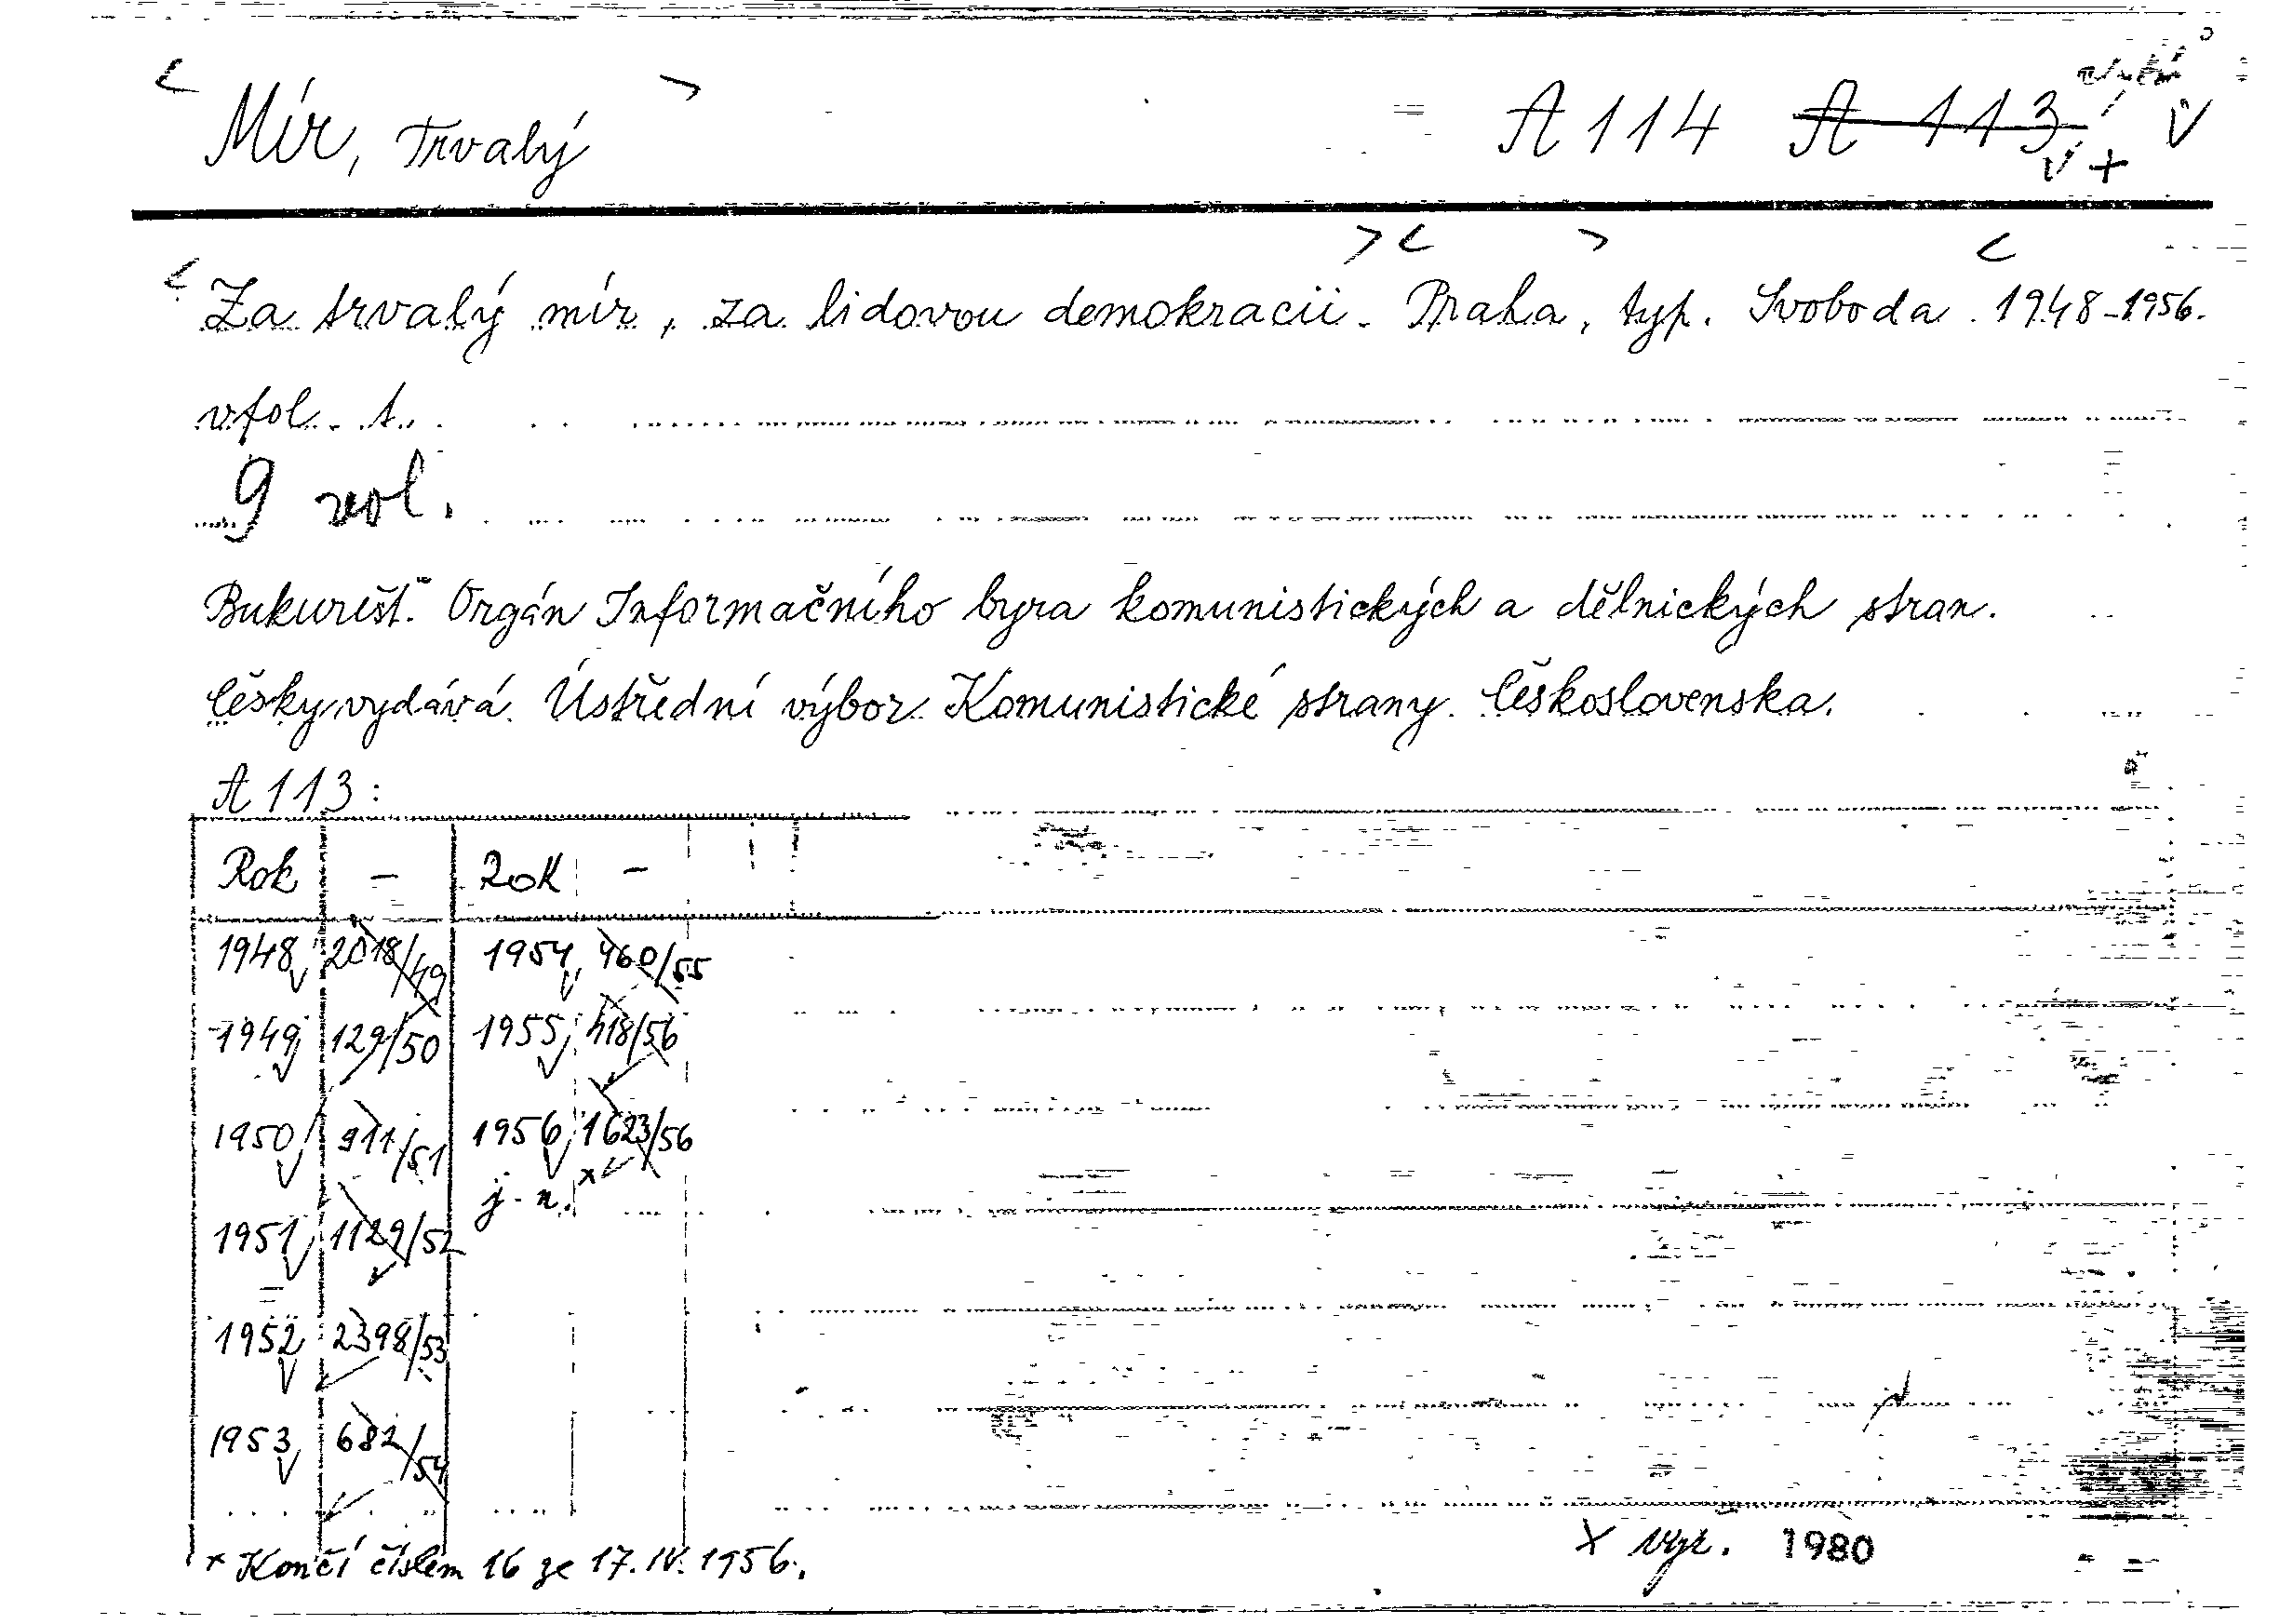 < Mír, Trvalý > A 114 A 113 V
V +
> < > <
< Za trvalý mír, za lidovou demokracii. Praha, typ. Svoboda. 1948-1956.
vfol. t.
9 vol.
Bukurešť. Orgán Informačního byra komunistických a dělnických stran.
Česky vydává Ústřední výbor Komunistické strany Československa.
A 113:
Rok - Rok -
1948 2018/49 1954 460/55
1949 129/50 1955 418/56
1950 911/51 1956 1623/56
j. n. x
1951 1129/52
1952 2398/53
1953 682/54
x Končí číslem 16 ze 17. IV. 1956.
X vyř. 1980